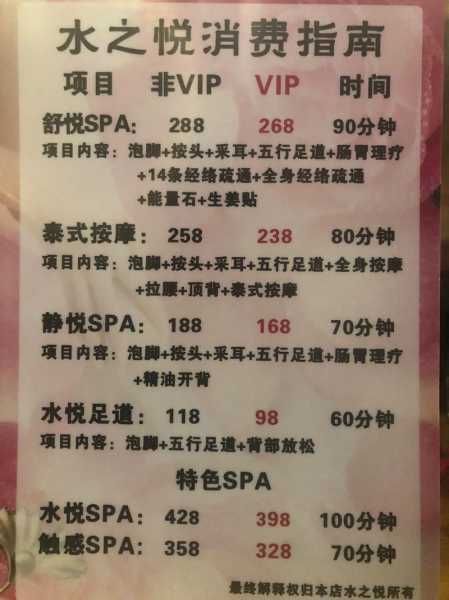 水之悦消费指南
项目 非VIP VIP 时间
舒悦SPA: 288 268 90分钟
项目内容: 泡脚+按头+采耳+五行足道+肠胃理疗
+14条经络疏通+全身经络疏通
+能量石+生姜贴
泰式按摩: 258 238 80分钟
项目内容: 泡脚+按头+采耳+五行足道+全身按摩
+拉腰+顶背+泰式按摩
静悦SPA: 188 168 70分钟
项目内容: 泡脚+按头+采耳+五行足道+肠胃理疗
+精油开背
水悦足道: 118 98 60分钟
项目内容: 泡脚+五行足道+背部放松
特色SPA
水悦SPA: 428 398 100分钟
触感SPA: 358 328 70分钟
最终解释权归本店水之悦所有